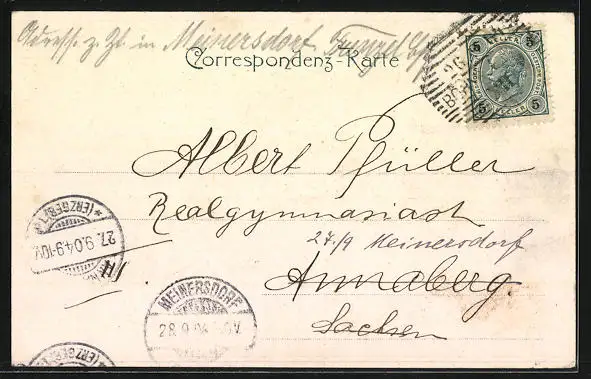 Adresse z. Zt. in Meinersdorf
Correspondenz-Karte
5 HELLER 5
5 HELLER 5
26
Albert Pfüller
Realgymnasiast
27/9 Meinersdorf
Annaberg.
Sachsen
(ERZGEB.)
27.9.04.9-10V.
MEINERSDORF
28.9.04
(ERZGEB.)